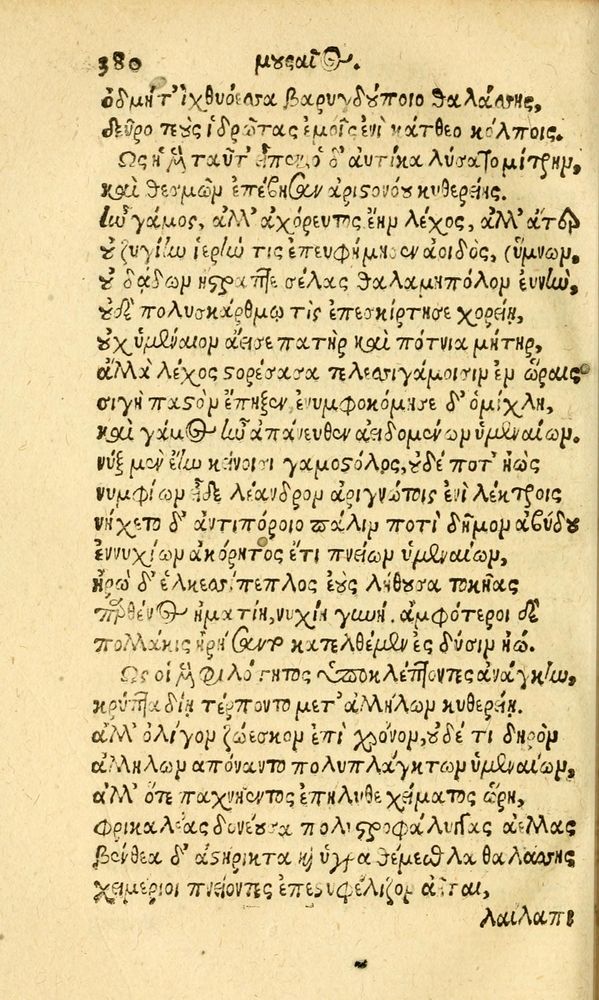 380 μουσαῖος.
ὀδμή τ' ἰχθυόεσσα βαρυγδούποιο θαλάσσης,
δεῦρο τεοὺς ἱδρῶτας ἐμοῖς ἐνὶ κάτθεο κόλποις.
Ὣς ἡ μὲν ταῦτ' εἶπεν, ὁ δ' αὐτίκα λύσατο μίτρην,
καὶ θεσμῶν ἐπέβησαν ἀριστονόου κυθερείης.
ἦν γάμος, ἀλλ' ἀχόρευτος ἔην λέχος, ἀλλ' ἄτερ
οὐ ζυγίην ἱερήν τις ἐπευφήμησεν ἀοιδός, (ὕμνων.
οὐ δάδων ἤστραπτε σέλας θαλαμηπόλον εὐνήν,
οὐδὲ πολυσκάρθμῳ τὶς ἐπεσκίρτησε χορείῃ,
οὐχ ὑμέναιον ἄεισε πατὴρ καὶ πότνια μήτηρ,
ἀλλὰ λέχος στορέσασα τελεσιγάμοισιν ἐν ὥραις
σιγὴ παστὸν ἔπηξεν, ἐνυμφοκόμησε δ' ὀμίχλη,
καὶ γάμος ἦν ἀπάνευθεν ἀειδομένων ὑμεναίων.
νὺξ μὲν ἔην κείνοισι γαμοστόλος, οὐδέ ποτ' ἠὼς
νυμφίον εἶδε λέανδρον ἀριγνώτοις ἐνὶ λέκτροις
νήχετο δ' ἀντιπόροιο πάλιν ποτὶ δῆμον ἀβύδου
ἐννυχίων ἀκόρητος ἔτι πνείων ὑμεναίων,
ἡρὼ δ' ἑλκεσίπεπλος ἑοὺς λήθουσα τοκῆας
παρθένος ἠματίη, νυχίη γυνή. ἀμφότεροι δὲ
πολλάκις ἠρήσαντο κατελθέμεν ἐς δύσιν ἠῶ.
Ὣς οἱ μὲν φιλότητος ὑποκλέπτοντες ἀνάγκην,
κρυπταδίῃ τέρποντο μετ' ἀλλήλων κυθερείῃ.
ἀλλ' ὀλίγον ζώεσκον ἐπὶ χρόνον, οὐδέ τι δηρὸν
ἀλλήλων ἀπόναντο πολυπλάγκτων ὑμεναίων,
ἀλλ' ὅτε παχνήεντος ἐπήλυθε χείματος ὥρη,
φρικαλέας δονέουσα πολυστροφάλιγγας ἀέλλας
βένθεα δ' ἀστήρικτα καὶ ὑγρὰ θέμεθλα θαλάσσης
χειμέριοι πνείοντες ἐπεστυφέλιζον ἀῆται,
λαίλαπι